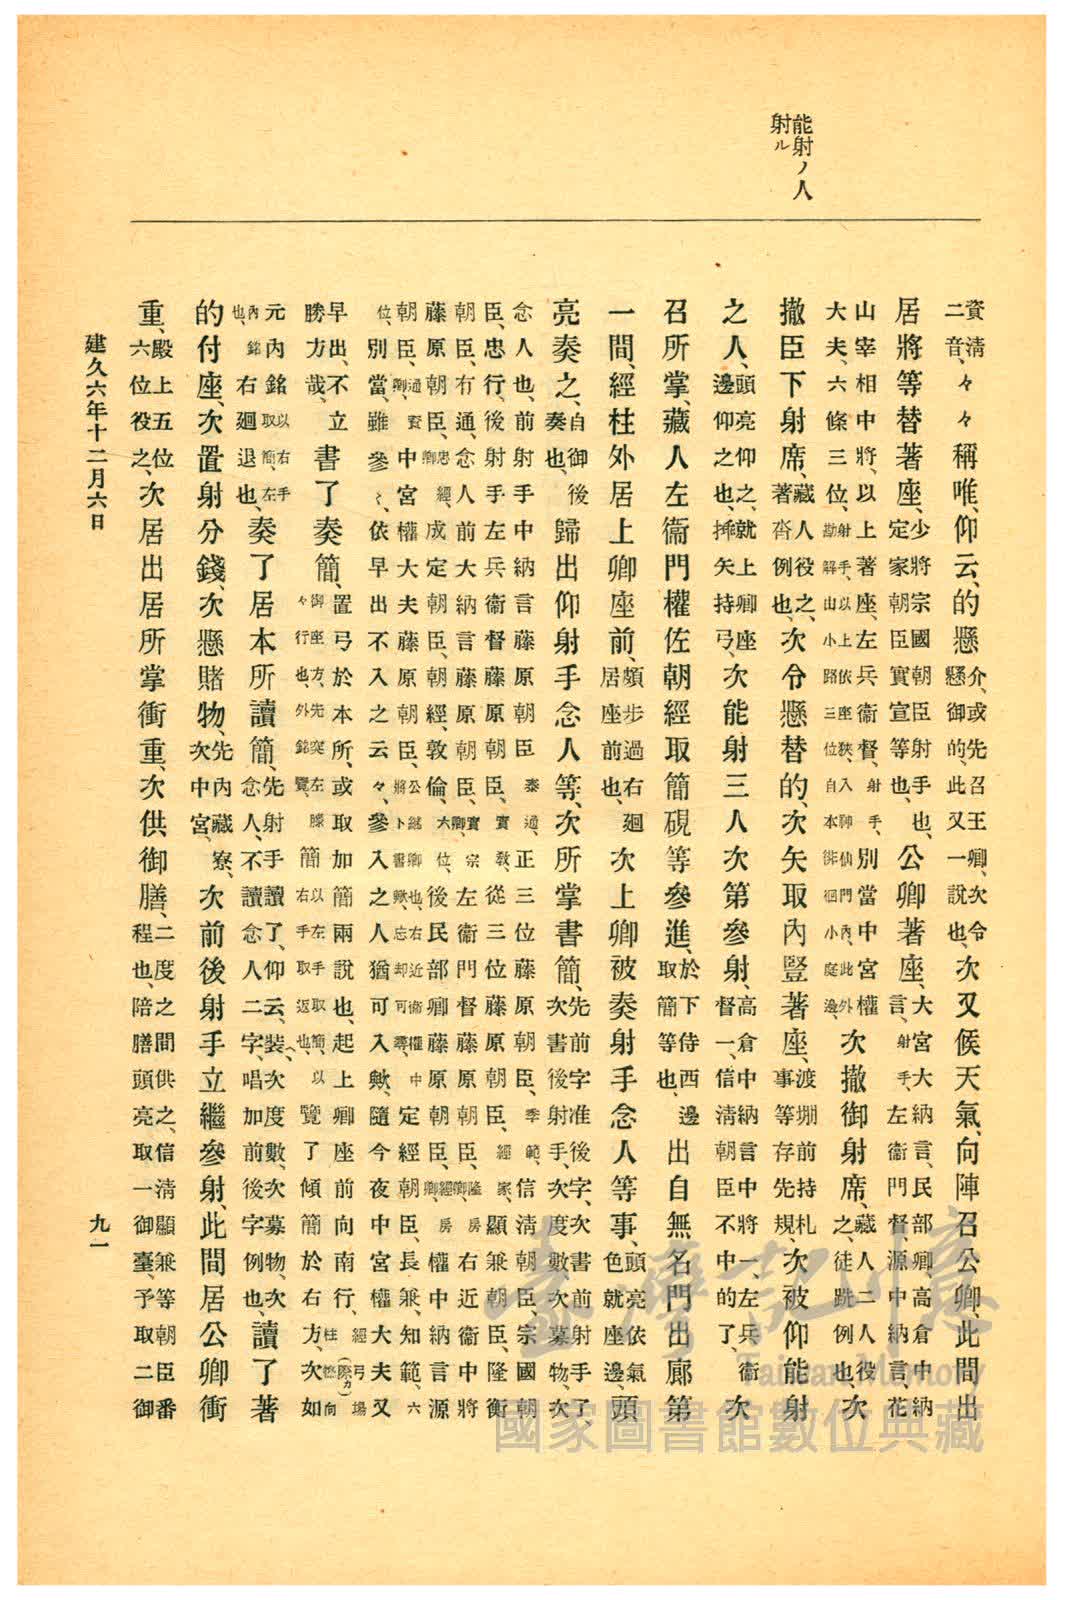 能射ノ人
射ル
資清
二音、々々稱唯、仰云、的懸介、或先召王卿、次令懸御的、此又一説也、次又候天氣、向陣召公卿、此間出
居將等替著座、少將宗國朝臣射手也、定家朝臣實宣等也、公卿著座、大宮大納言、民部卿、高倉中納言、射手、左衞門督、源中納言、花
山宰相中將、以上著座、左兵衞督、射手、別當、中宮權大夫、六條三位、射手、以上依座狹、入神仙門內、此外勘解山小路三位自本徘徊小庭邊、次撤御射席、藏人二人役之、徒跣例也、次
撤臣下射席、藏人役之、著沓例也、次令懸替的、次矢取內豎著座、渡堋前持札事等存先規、次被仰能射
之人、頭亮仰之、就上卿座邊仰之也、搢矢持弓、次能射三人次第參射、高倉中納言中將一、左兵衞督一、信清朝臣不中的了、次
召所掌、藏人左衞門權佐朝經取簡硯等參進、於下侍西邊取簡等也、出自無名門出廊第
一間、經柱外居上卿座前、頗步過右廻居座前也、次上卿被奏射手念人等事、頭亮依氣色就座邊、頭
亮奏之、自御後奏也、歸出仰射手念人等、次所掌書簡、先前字准後字、次書前射手了、次書後射手、次度數、次募物、次
念人也、前射手中納言藤原朝臣泰通、正三位藤原朝臣、季範、信清朝臣、宗國朝
臣、忠行、後射手左兵衞督藤原朝臣、實敎、從三位藤原朝臣、經家、顯兼朝臣、隆衡
朝臣、有通、念人前大納言藤原朝臣、實宗卿、左衞門督藤原朝臣、隆房卿、右近衞中將
藤原朝臣、忠經卿、成定朝臣、經、敦倫、大位、後民部卿藤原朝臣、經房卿、權中納言源
朝臣、通資卿、中宮權大夫藤原朝臣、公繼卿也、右近衞權中將卜書歟、忘却可尋、定經朝臣、長兼、知範、六
位、別當雖參ゝ、依早出不入之云々、參入之人猶可入歟、隨今夜中宮權大夫又
早出、不立勝方哉、書了奏簡、置弓於本所、或取加簡兩説也、起上卿座前向南行、經弓場柱(際カ)橑向御座方、先突左膝、以左手取簡、以右手取返也、覽了傾簡於右方、次如
元內銘、以右手取簡、左內銘也、右廻退也、奏了居本所讀簡、先射手讀了、仰云、裝、次度數、次募物、次念人、不讀念人二字、唱加前後字例也、讀了著
的付座、次置射分錢、次懸賭物、先內藏寮、次中宮、次前後射手立繼參射、此間居公卿衝
重、殿上五位六位役之、次居出居所掌衝重、次供御膳、二度之間供之、信清顯兼等朝臣番程也、陪膳頭亮取一御臺、予取二御
建久六年十二月六日
九一
臺灣記憶
Taiwan Memory
國家圖書館數位典藏